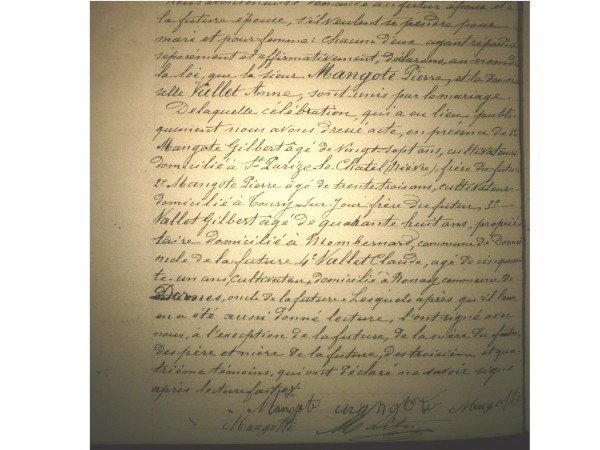 nous avons demandé au futur époux et à
la future épouse, s'ils veulent se prendre pour
mari et pour femme: chacun d'eux ayant répondu
séparément et affirmativement, déclarons au nom de
la loi, que le sieur Mangote Pierre, et la
selle Vallet Anne, sont unis par le mariage.
De laquelle célébration, qui a eu lieu publi-
quement nous avons dressé acte, en présence de 1°
Mangote Gilbert âgé de vingt-sept ans, cultivateur
domicilié à St Parize-le-Chatel (Nièvre), frère du futur
2° Mangote Pierre âgé de trente trois ans, cultivateur
domicilié à Toury-sur-Jour frère du futur, 3°
Vallet Gilbert âgé de quarante huit ans, proprié-
taire domicilié à commune de
oncle de la future 4° Vallet Claude, âgé de cinquante
te-un ans, cultivateur, domicilié à commune de
Dornes, oncle de la future. Lesquels après qu'il leur
en a été aussi donné lecture, l'ont signé avec
nous, à l'exception de la future, de la mère du futur
des père et mère de la future, des troisième et qua-
trième témoins, qui ont déclaré ne savoir signer
après lecture faite.
Mangote Mangote
Mangotte